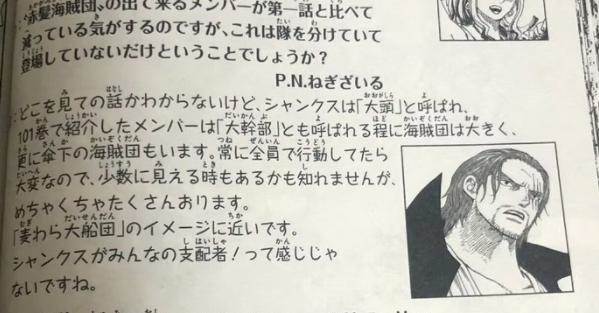 "赤髪海賊団"の出て来るメンバーが第一話と比べて
減っている気がするのですが、これは隊を分けていて
登場していないだけということでしょうか？
P.N.ねぎざいる
:どこを見ての話かわからないけど、シャンクスは「大頭」と呼ばれ、
101巻で紹介したメンバーは「大幹部」とも呼ばれる程に海賊団は大きく、
更に傘下の海賊団もいます。常に全員で行動してたら
大変なので、少数に見える時もあるかも知れませんが、
めちゃくちゃたくさんおります。
「麦わら大船団」のイメージに近いです。
シャンクスがみんなの支配者！って感じじゃ
ないですね。